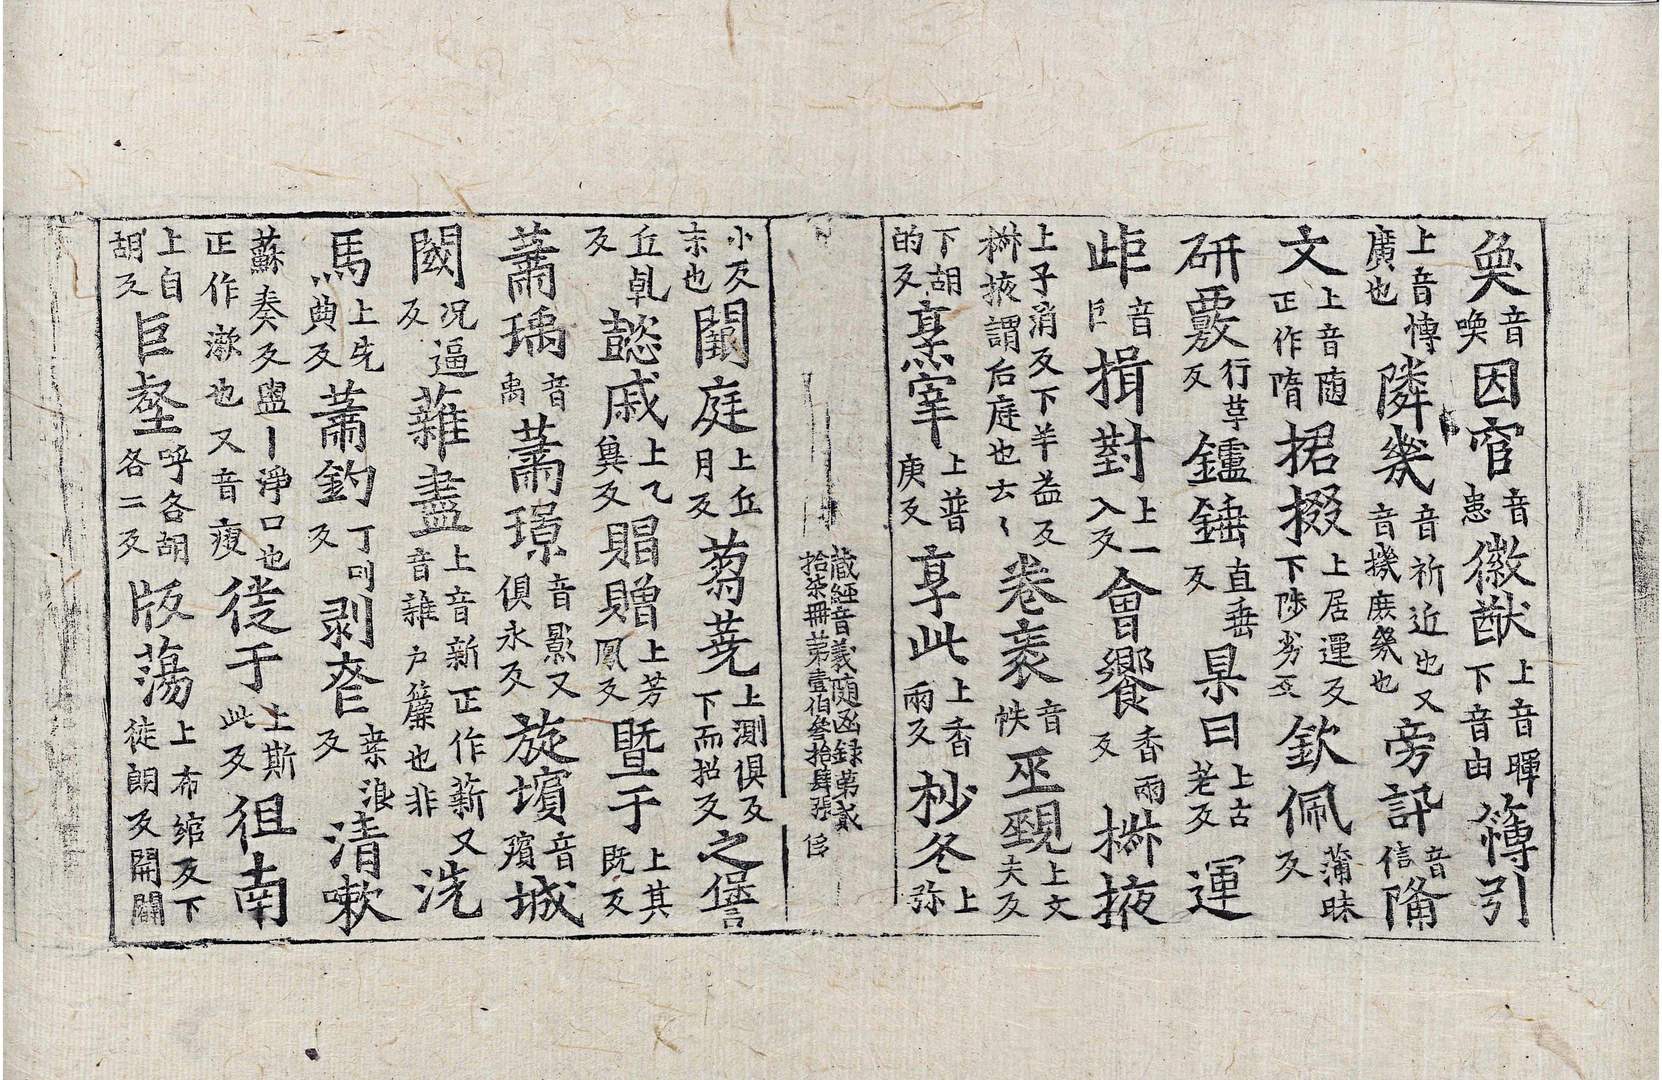 奐音喚因宦音患徽猷上音暉下音由簿引
上音愽廣也隣幾音祈近也又音機庶幾也旁訊音信隋
文上音隨正作隋捃掇上居運反下陟劣反欽佩蒲昧反
研覈行革反鑪錘直垂反杲曰上古老反運
歫音巨揖對上一入反會饗香兩反擗掖
上子消反下羊益反擗掖謂后庭也去丶卷袠音帙巫覡上文夫反
下胡的反烹宰上普庚反享此上香兩反杪冬上弥
藏經音義隨函録第貳
拾柒冊第壹伯叁拾肆張
小反末也闕庭上丘月反蒭蕘上測俱反下而招反之僁
丘乹反懿戚上乙兾反賵贈上芳鳳反暨于上其既反
蕭瑀音禹蕭璟音影又俱永反旋殯音殯城
閾况逼反薙盡上音新正作薪又音雜户簾也非洗
馬上先典反蕭鈞丁叫反剥奩桒浪反清嗽
蘇奏反盥丨淨口也正作漱也又音瘦徙于上斯此反徂南
上自胡反巨壑呼各胡各二反版蕩上布綰反下徒朗反開闢